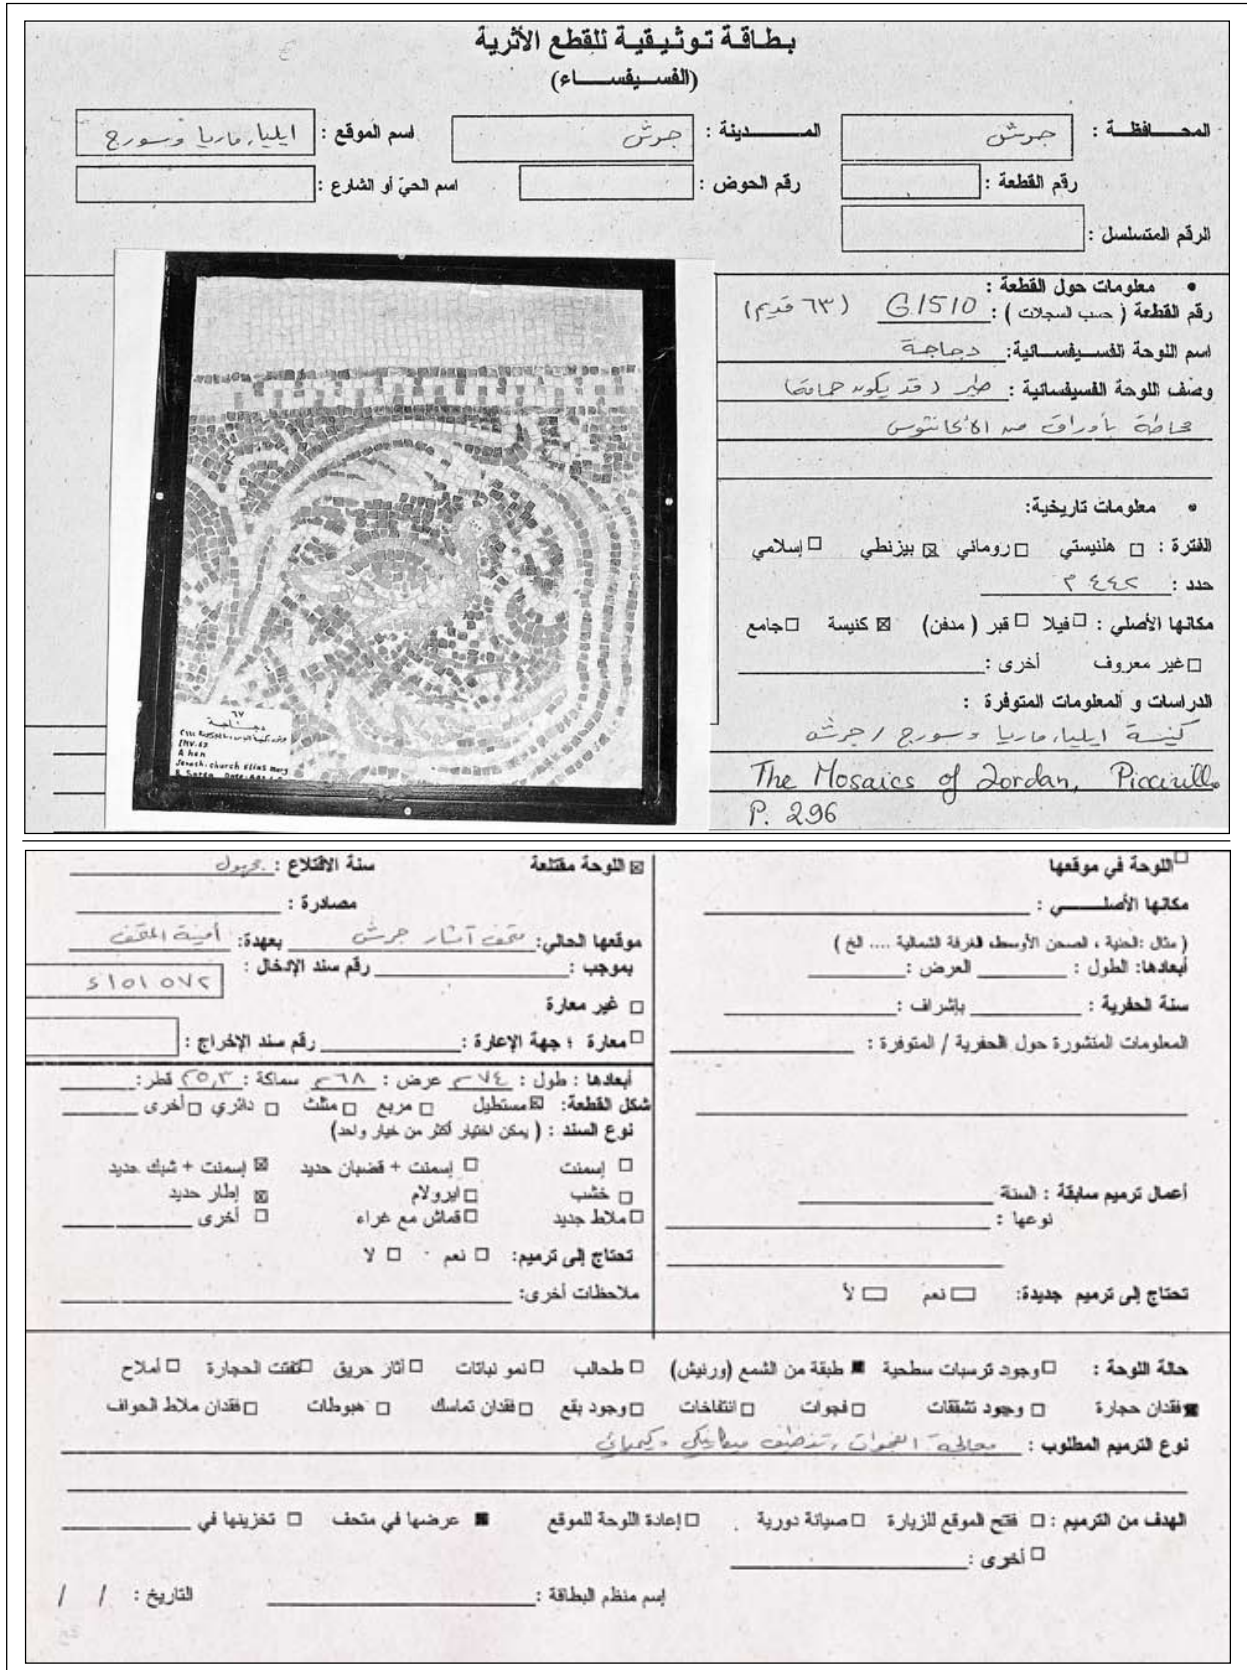 بطاقة توثيقية للقطع الأثرية
(الفسيفساء)
المحافظة : جرش المدينة : جرش اسم الموقع : ايليا، ماريا وسورج
رقم القطعة : رقم الحوض : اسم الحيّ أو الشارع :
الرقم المتسلسل :
• معلومات حول القطعة :
رقم القطعة ( حسب السجلات ) : G.1510 (٦٣ قديم)
اسم اللوحة الفسيفسائية: دجاجة
وصف اللوحة الفسيفسائية : طير ( قد يكون حمامة)
محاطة بأوراق من الأكانثوس
• معلومات تاريخية:
الفترة : □ هلنيستي □ روماني ☒ بيزنطي □ إسلامي
حدد : ٤٤٢ م
مكانها الأصلي : □ فيلا □ قبر ( مدفن) ☒ كنيسة □ جامع
□ غير معروف أخرى :
الدراسات و المعلومات المتوفرة :
كنيسة ايليا، ماريا وسورج / جرش
The Mosaics of Jordan, Piccirillo
P. 296
٦٧
دجاجة
INV. 67
A hen
Jerash. church Elias Mary
□ اللوحة في موقعها
مكانها الأصلي :
( مثال :الحنية ، الصحن الأوسط، الغرفة الشمالية .... الخ )
أبعادها: الطول : العرض :
سنة الحفرية : بإشراف :
المعلومات المنشورة حول الحفرية / المتوفرة :
أعمال ترميم سابقة : السنة
نوعها :
تحتاج إلى ترميم جديدة: □ نعم □ لا
☒ اللوحة مقتلعة سنة الاقتلاع : مجهول
مصادرة :
موقعها الحالي: متحف آثار جرش بعهدة: أمينة المتحف
بموجب : رقم سند الإدخال :
□ غير معارة
□ معارة ؛ جهة الإعارة : رقم سند الإخراج :
أبعادها : طول : ٧٤سم عرض : ٦٨سم سماكة : قطر:
شكل القطعة: ☒ مستطيل □ مربع □ مثلث □ دائري □ أخرى
نوع السند : ( يمكن اختيار أكثر من خيار واحد)
□ إسمنت □ إسمنت + قضبان حديد ☒ إسمنت + شبك حديد
□ خشب □ ايرولام ☒ إطار حديد
□ ملاط جديد □ قماش مع غراء □ أخرى
تحتاج إلى ترميم: □ نعم □ لا
ملاحظات أخرى:
حالة اللوحة : □ وجود ترسبات سطحية ■ طبقة من الشمع (ورنيش) □ طحالب □ نمو نباتات □ آثار حريق □ تفتت الحجارة □ أملاح
■ فقدان حجارة □ وجود تشققات □ فجوات □ انتفاخات □ وجود بقع □ فقدان تماسك □ هبوطات □ فقدان ملاط الحواف
نوع الترميم المطلوب : معالجة الفجوات، تنظيف ميكانيكي وكيميائي
الهدف من الترميم : □ فتح الموقع للزيارة □ صيانة دورية □ إعادة اللوحة للموقع ■ عرضها في متحف □ تخزينها في
□ أخرى :
إسم منظم البطاقة : التاريخ : / /